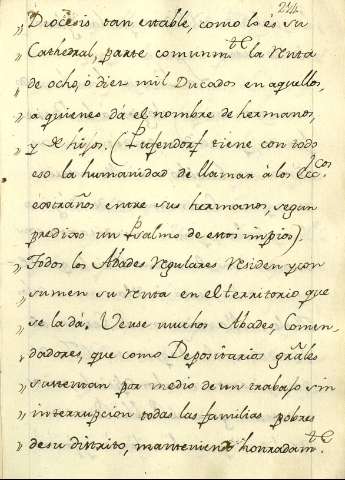 214
„ Diocesis tan estable, como lo es su
„ Cathedral, parte comunm.te la renta
„ de ocho, ò diez mil Ducados en aquellos,
„ a quienes dà el nombre de hermanos,
„ y de hijos. (Pufendorf tiene con todo
eso la humanidad de llamar à los Ecc.cos
extraños entre sus hermanos, segun
predixo un Psalmo de estos impios).
„ Todos los Abades regulares residen y con
„ sumen su renta en el territorio que
„ se la dà. Vense muchos Abades, Comen-
„ dadores, que como Depositarios grâles
„ sustentan por medio de un trabajo sin
„ interrupcion todas las familias pobres
„ de su distrito, manteniendo honradam.te